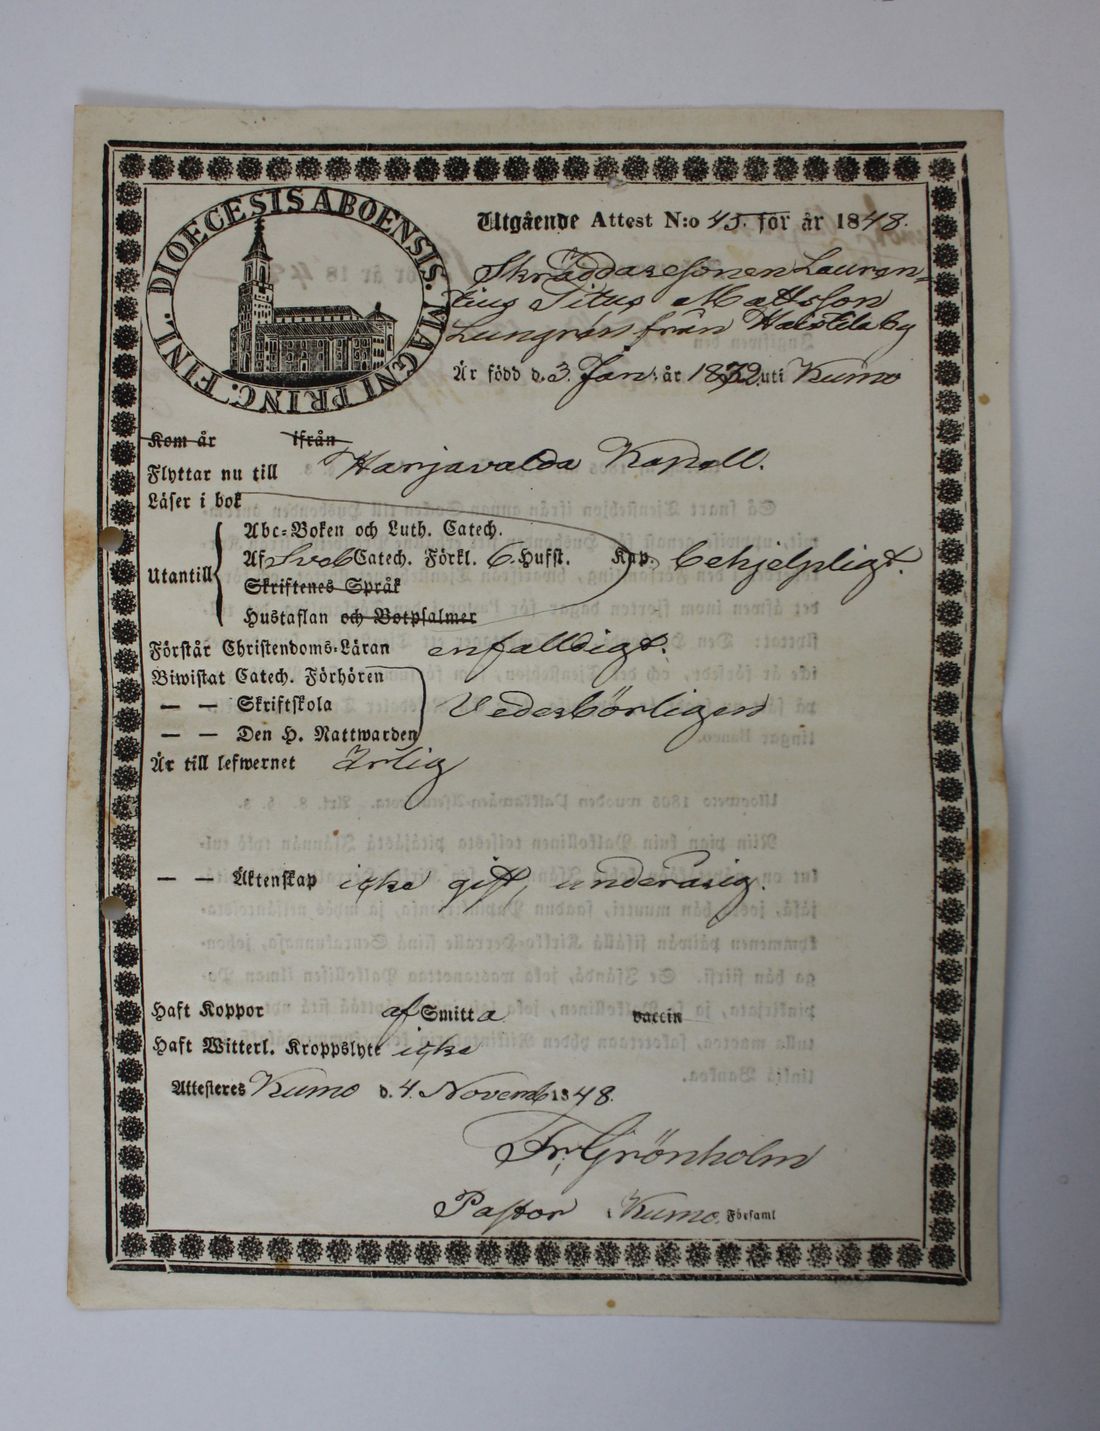 DIOECESIS ABOENSIS. MAGNI PRINC. FINL.
Utgående Attest N:o 45. för år 1848.
Skräddaresonen Lauren-
tius Titus Mattsson
Lungrén från Haistilaby
Är född d. 3 Jan. år 1832 uti Kumo
Kom år ifrån
Flyttar nu till Harjavalda Kapell.
Läser i bok
Abc-Boken och Luth. Catech.
Utantill Af Sveb Catech. Förkl. 6. Hufst. Kap. behjelpligt.
Skriftenes Språk
Hustaflan och Botpsalmer
Förstår Christendoms-Läran enfalldigt.
Biwistat Catech. Förhören
— — Skriftskola Vederbörligen
— — Den H. Nattwarden
Är till lefwernet Ärlig
— — Äktenskap icke gift, underårig.
Haft Koppor af Smitta vaccin
Haft Witterl. Kroppslyte icke
Attesteres Kumo d. 4. Novemb 1848.
Fr. Grönholm
Pastor i Kumo Församl